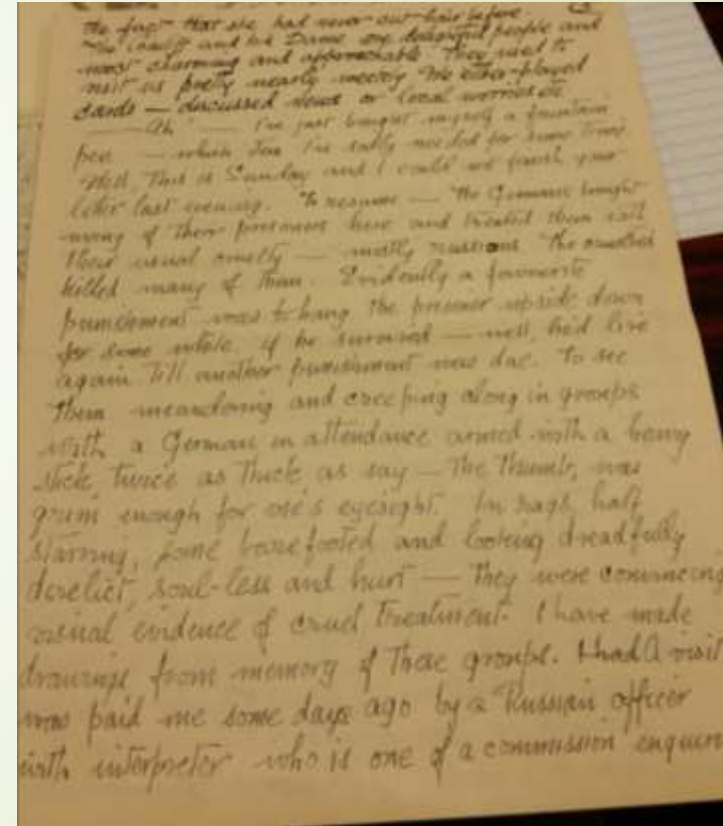 the fact that she had never cut hair before.
The Bailiff and his Dame are delightful people and
most charming and approachable They used to
visit us pretty nearly weekly We either played
cards — discussed news or local worries etc
— Ah — I've just bought myself a fountain
pen — which I'm really needed for some time
Well, This is Sunday and I could not finish your
letter last evening. To resume — The Germans brought
many of their prisoners here and treated them with
their usual cruelty — mostly russians The
killed many of them. Evidently a favourite
punishment was to hang the prisoner upside down
for some while, if he survived — well, he'd live
again till another punishment was due. To see
them meandering and creeping along in groups
with a German in attendance armed with a heavy
stick twice as thick as say — the thumb, was
grim enough for one's eyesight. In rags, half
starving, some barefooted and looking dreadfully
derelict, soul-less and hurt — they were convincing
visual evidence of cruel treatment. I have made
drawings from memory of these groups. I had A visit
was paid me some days ago by a Russian officer
with interpreter who is one of a commission enquirin